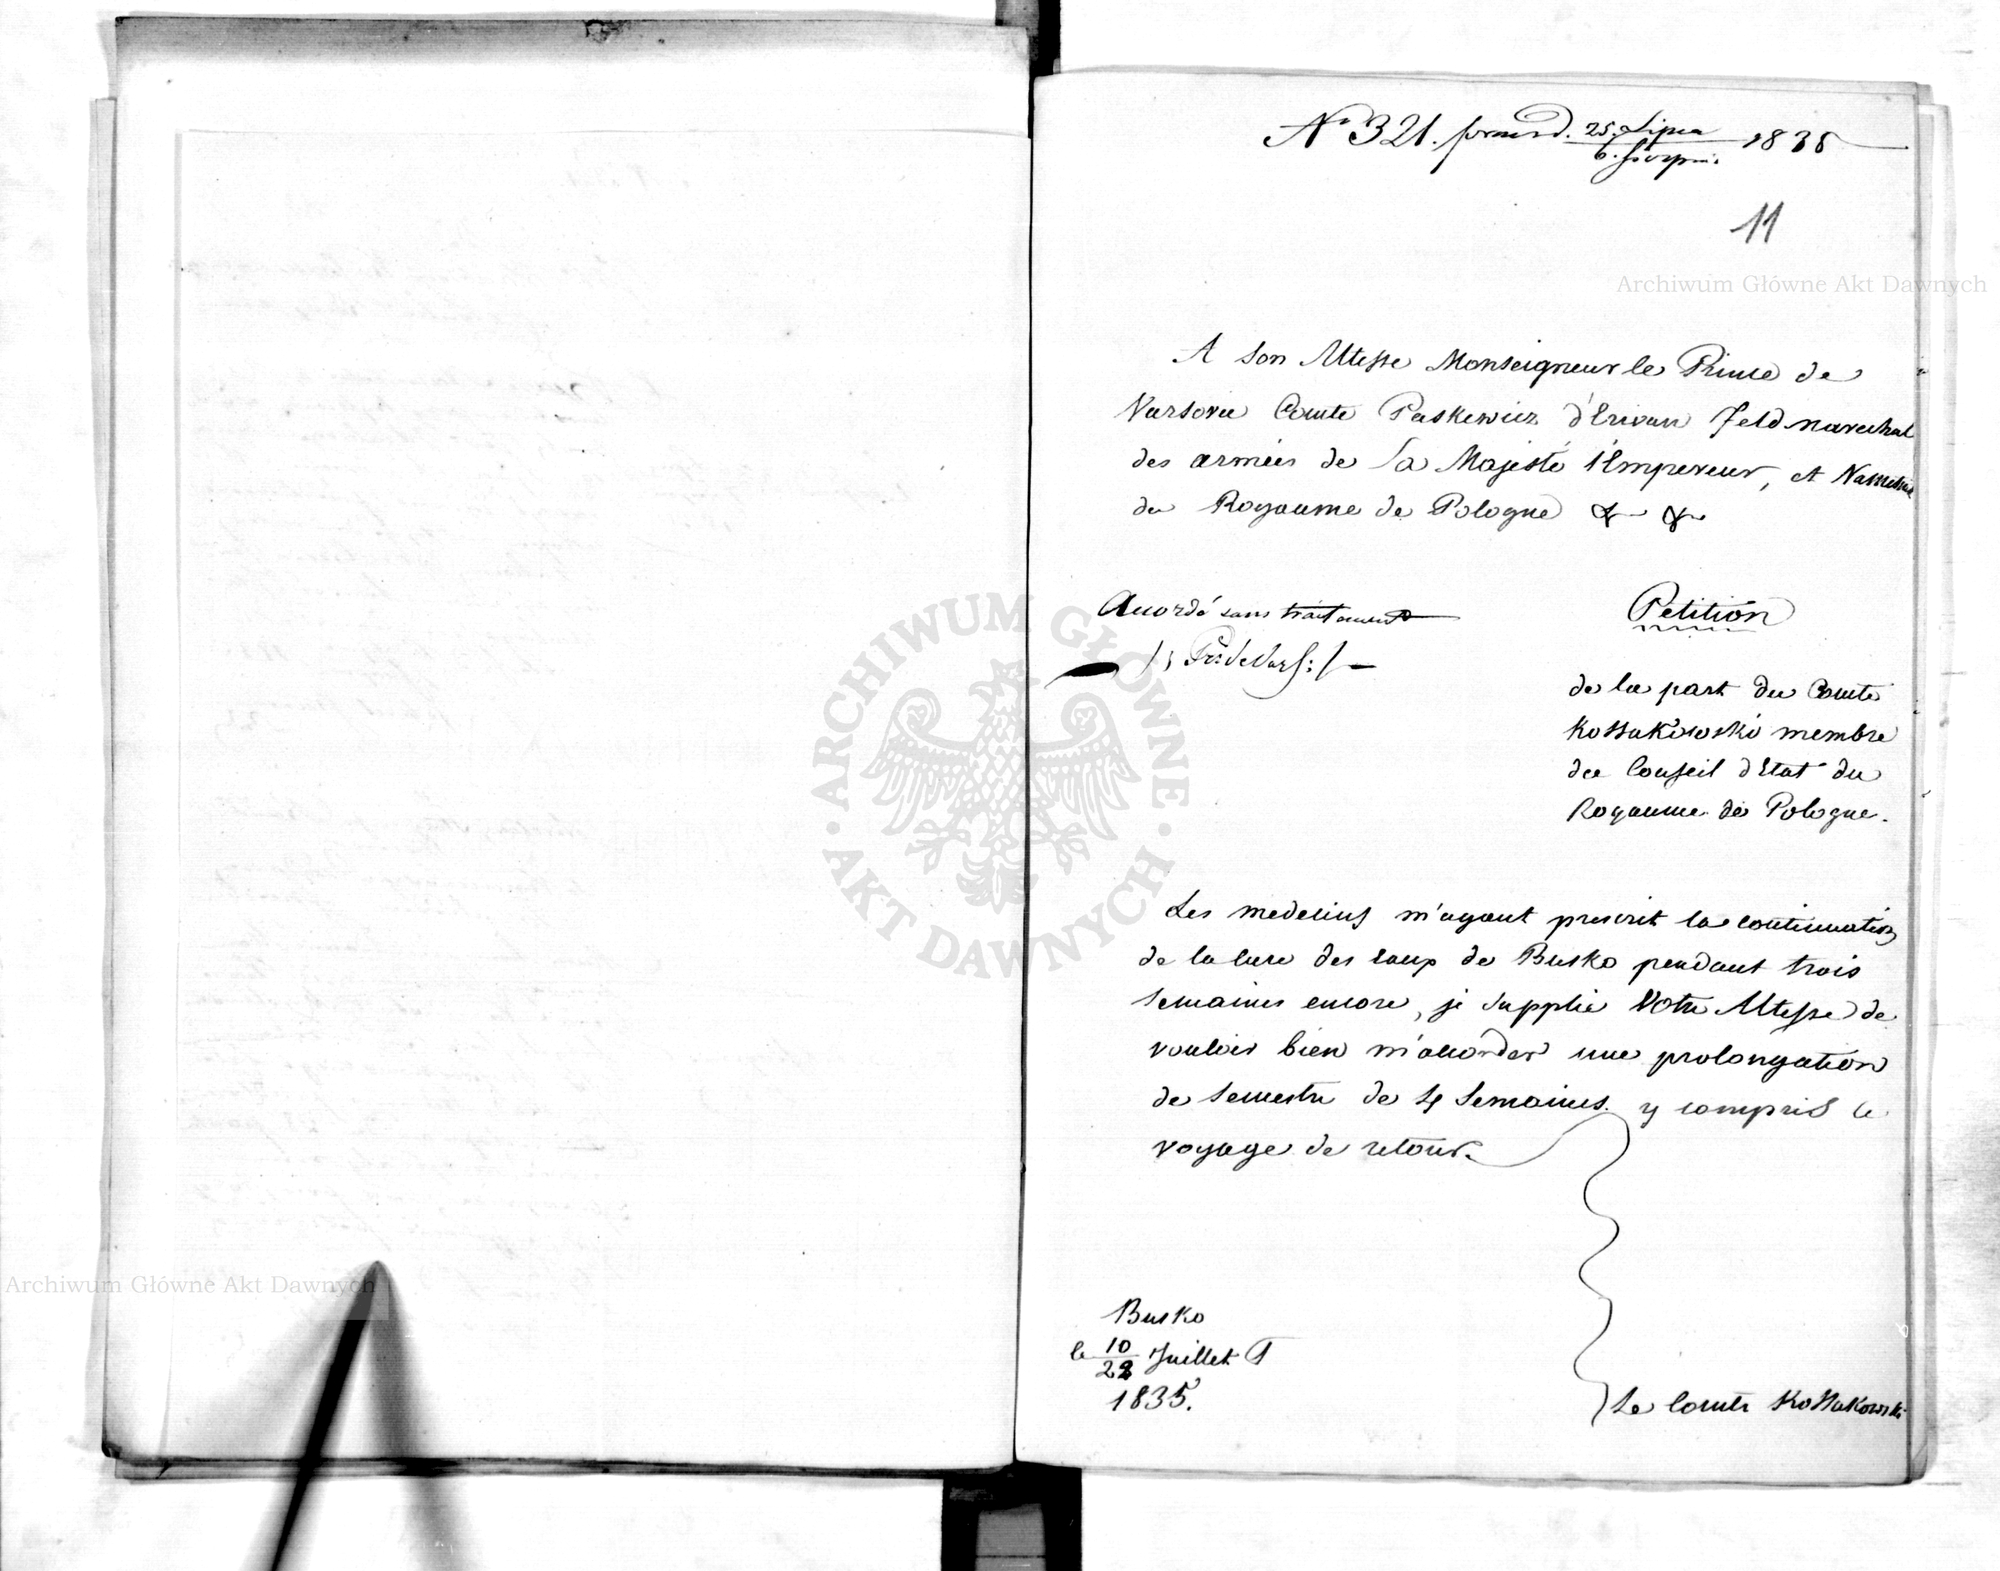 No 321. 25. Lipca 1835
6. Sierpnia
11
A Son Altesse Monseigneur le Prince de
Varsovie Comte Paskewicz d'Erivan Feld-marechal
des armées de Sa Majesté l'Empereur, et Namestnik
du Royaume de Pologne & &
Accordé sans traitement
/: Pr: de Vars: /
Petition
de la part du Comte
Kossakowski membre
du Conseil d'Etat du
Royaume de Pologne.
Les medecins m'ayant prescrit la continuation
de la cure des eaux de Busko pendant trois
semaines encore, je supplie Votre Altesse de
vouloir bien m'accorder une prolongation
de semestre de 4 semaines y compris le
voyage de retour.
Busko
le 10/22 Juillet
1835.
Le Comte Kossakowski
Archiwum Główne Akt Dawnych
Archiwum Główne Akt Dawnych
ARCHIWUM GŁÓWNE AKT DAWNYCH